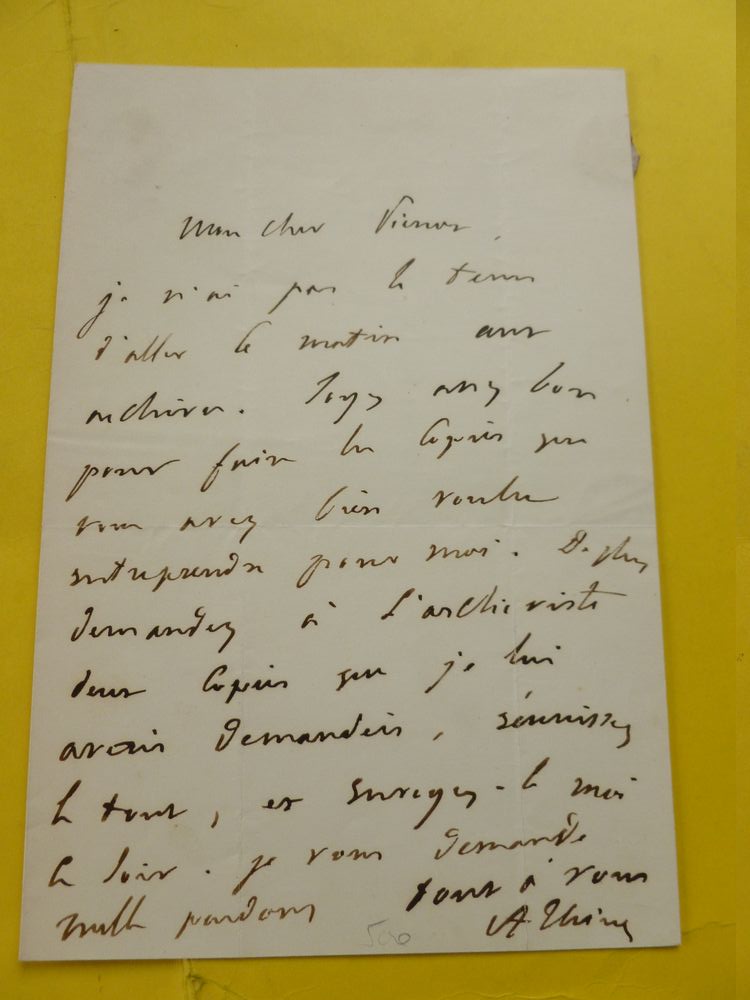 Mon cher
je n'ai pas le tems
d'aller ce matin aux
archives. Soyez assez bon
pour faire les copies que
vous avez bien voulu
entreprendre pour moi. De plus
demandez à l'archiviste
deux copies que je lui
avais demandées, réunissez
le tout, et envoyez-le moi
ce soir. je vous demande
mille pardons
tout à vous
A Thiers
500